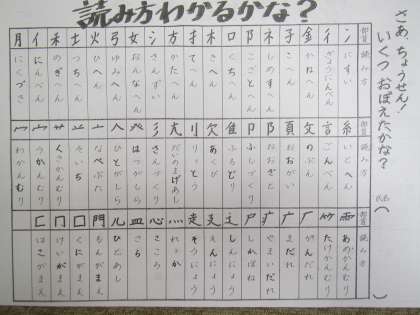 読み方わかるかな？
さあ、ちょうせん！
いくつおぼえたかな？
氏名（
部首 読み方
冫 にすい
彳 ぎょうにんべん
金 かねへん
子 こへん
ネ しめすへん
阝 こざとへん
口 くちへん
木 きへん
扌 てへん
方 かたへん
氵 さんずい
女 おんなへん
弓 ゆみへん
火 ひへん
土 つちへん
禾 のぎへん
亻 にんべん
月 にくづき
部首 読み方
糸 いとへん
言 ごんべん
攵 のぶん
頁 おおがい
阝 おおざと
卩 ふしづくり
隹 ふるとり
欠 あくび
刂 りっとう
尢 だいのまげあし
彡 さんづくり
癶 はつがしら
人 ひとがしら
亠 なべぶた
䒑 そいち
艹 くさかんむり
宀 うかんむり
冖 わかんむり
部首 読み方
雨 あめかんむり
竹 たけかんむり
厂 がんだれ
广 まだれ
疒 やまいだれ
尸 しかばね
辶 しんにょう
廴 えんにょう
走 そうにょう
灬 れっか
心 こころ
皿 さら
儿 ひとあし
門 もんがまえ
囗 くにがまえ
冂 けいがまえ
匚 はこがまえ